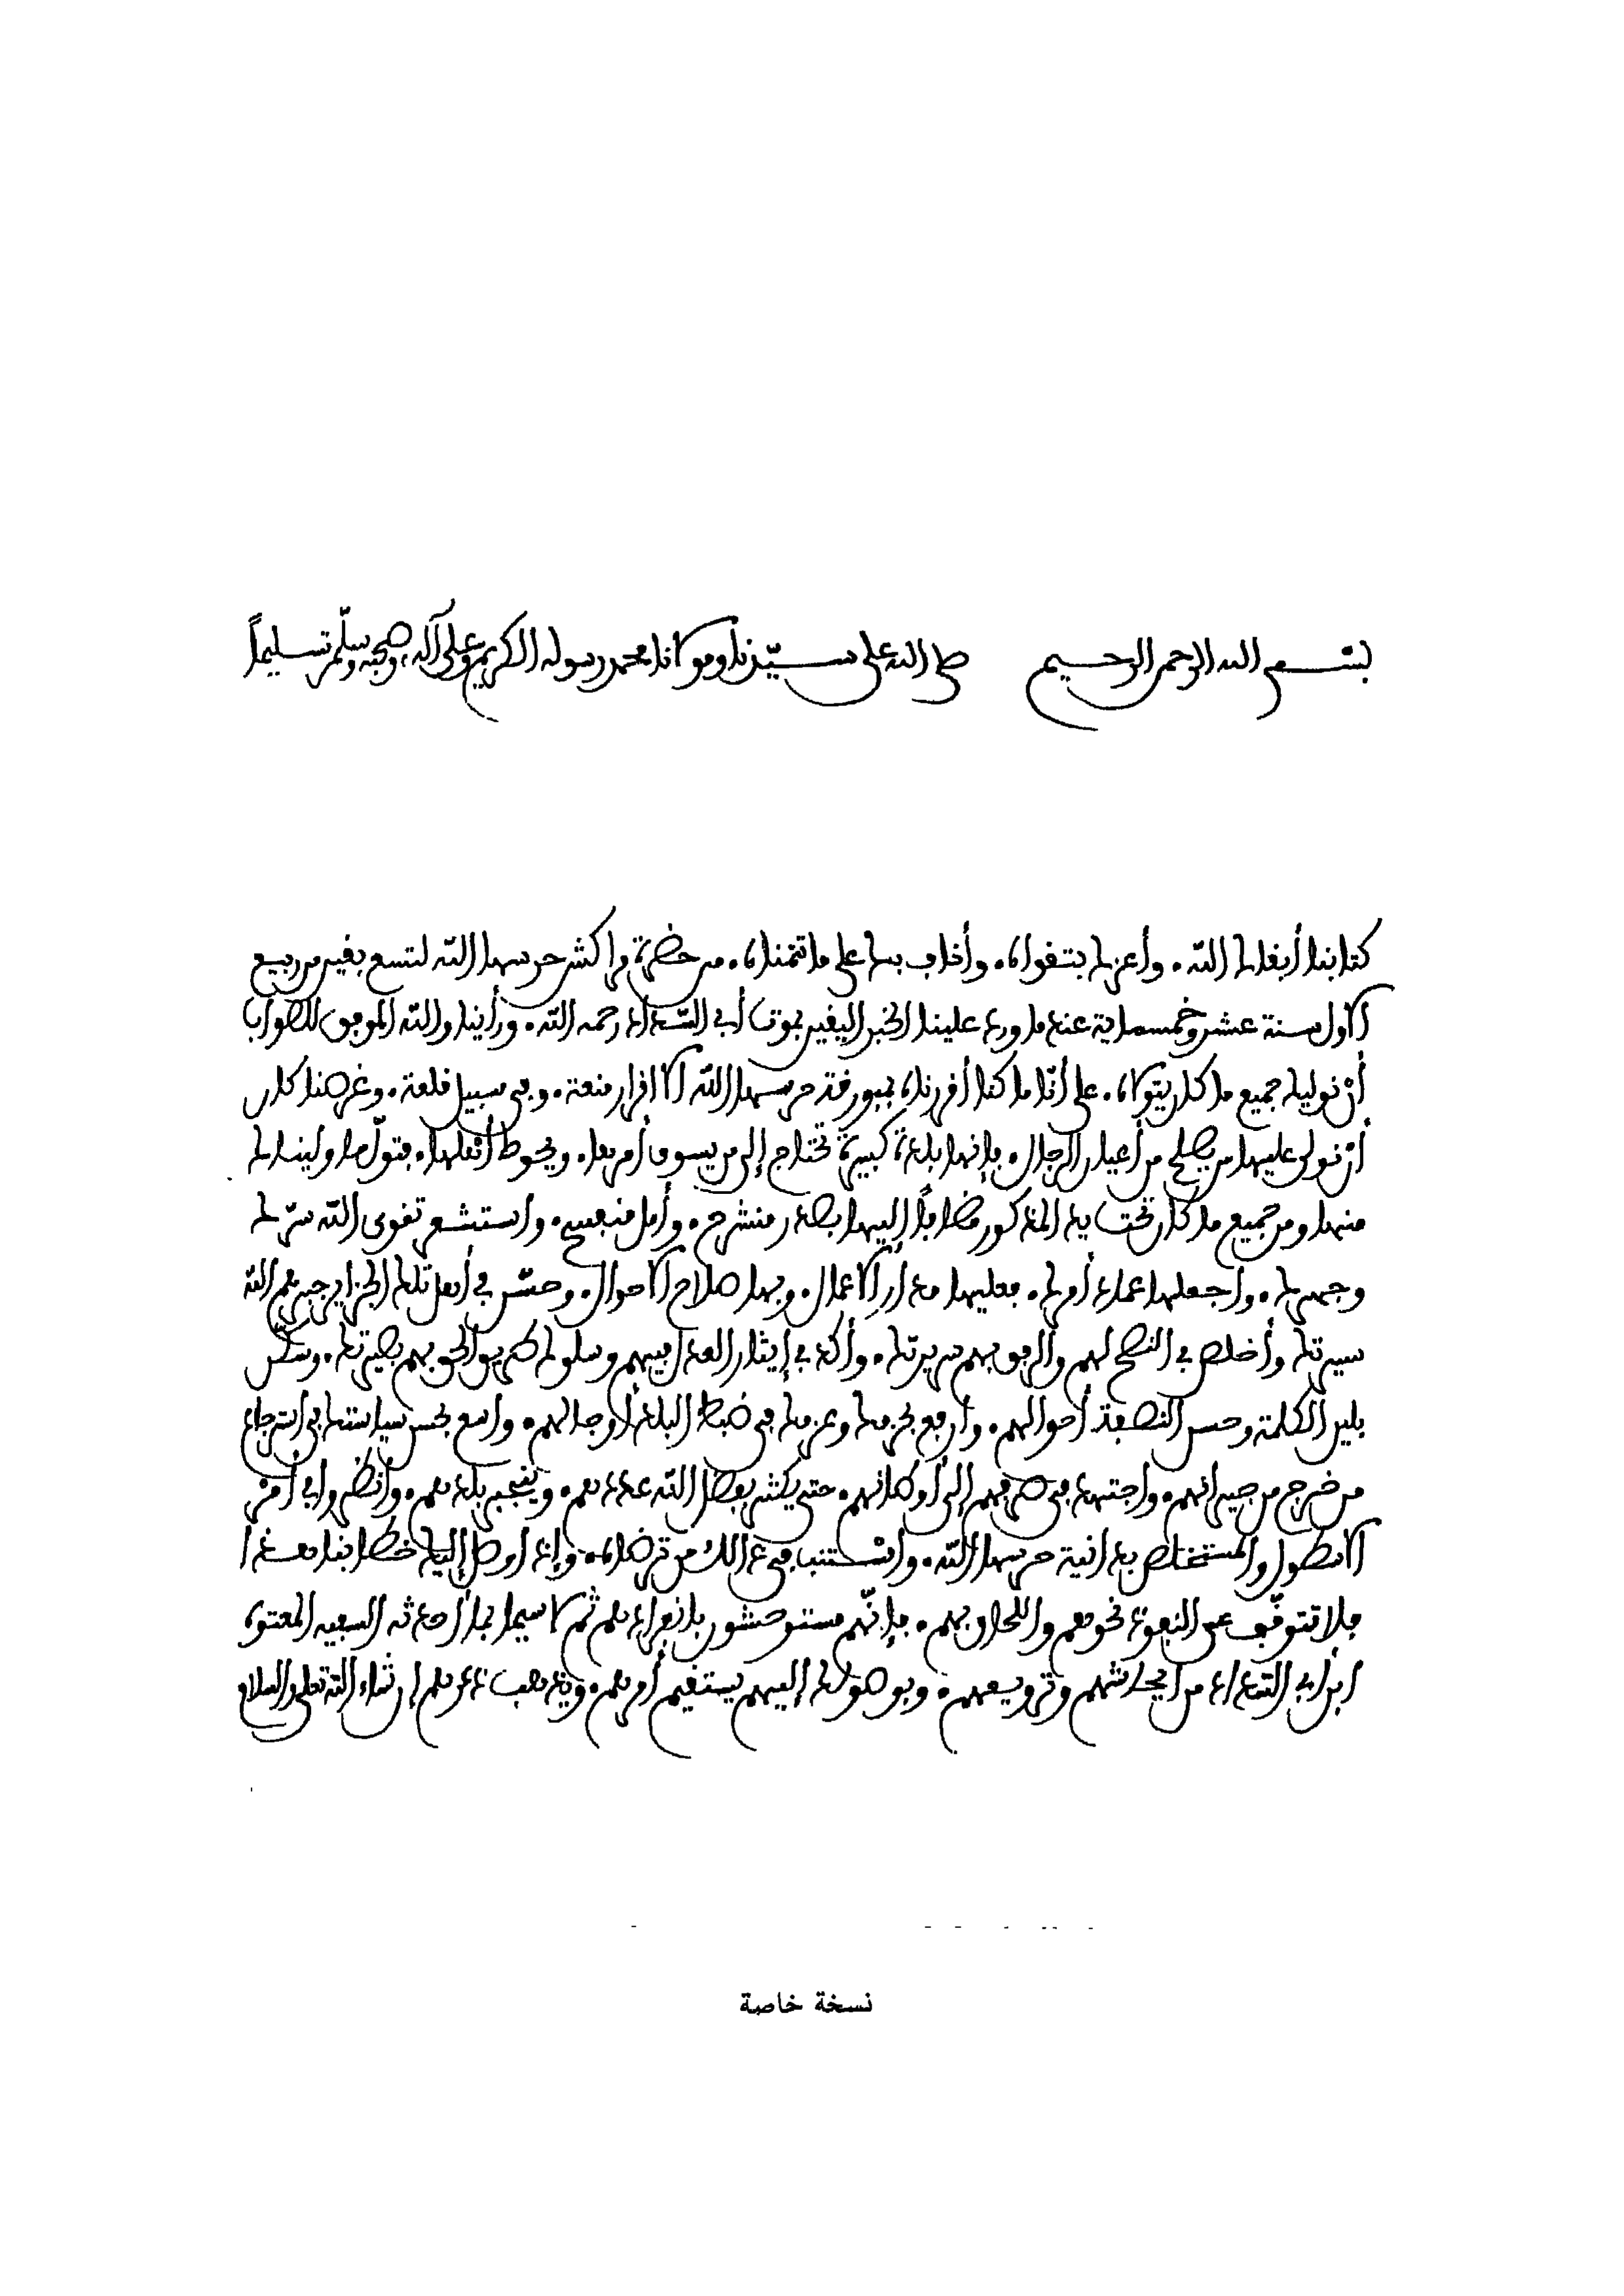 بسم الله الرحمن الرحيم صلى الله على سيّدنا ومولانا محمد رسوله الكريم وعلى آله وصحبه وسلّم تسليماً
كتابنا أبقاك اللّه. وأعزك بتقواه. وأخلف بك على ما تتمناه. من حضرة مراكش حرسها اللّه لتسع بقين من ربيع
الاول سنة عشر وخمسماية عندما ورد علينا الخبر اليقين بموت أبي السّداد رحمه اللّه. ورأينا واللّه الموفق للصواب
أن نوليك جميع ما كان يتولاه. على أنّا ما كنا أقررناه بميورقة حرسها اللّه الا اقرار منعة. وفي سبيل قلعة. وغرضنا كان
أن نولى عليها من يصلح من أعيان الرجال. فإنها بلدة كبيرة تحتاج إلى من يسوس أمرها. ويحوط أهلها. فتولّ ما وليناك
منها ومن جميع ما كان تحت يد المذكور مضافاً إليها بصدر منشرح. وأمل منفسح. واستشعر تقوى اللّه سرّك
وجهرك. واجعلها عماد أمرك. فعليها مدار الاعمال. وبها صلاح الاحوال. وحسّن في أهل تلك الجزاير جبرهم اللّه
سيرتك وأخلص في النصح لهم والرفق بهم سريرتك. وأكد في إيثار العدل فيهم وسلوك طريق الحق بهم بصيرتك. وسكّن
بلين الكلمة وحسن النصفة أحوالهم. وارفع بحزمك وعزمك في ضبط البلد أوجالهم. واسع بحسن سياستك في استرجاع
من خرج من جيرانهم. واجتهد في صرفهم إلى أوطانهم. حتى يكثر بفضل اللّه عددهم. وينجبر بلدهم. وانظر في أمر
الاسطول والمستخلص بدانية حرسها اللّه. واستنب في ذالك من ترضاه. وإذا وصل إليك خطابنا هذا
فلا تتوقف عن النفوذ نحوهم واللحاق بهم. فإنّهم مستوحشون بانفرادهم ثم لا سيما بما أحدثه السفيه المعتوه
ابن أبي السّداد من ايحاشهم وترويعهم. وبوصولك إليهم يستقيم أمرهم. ويذهب ذعرهم إن شاء اللّه تعلى والسلام
نسخة خاصة